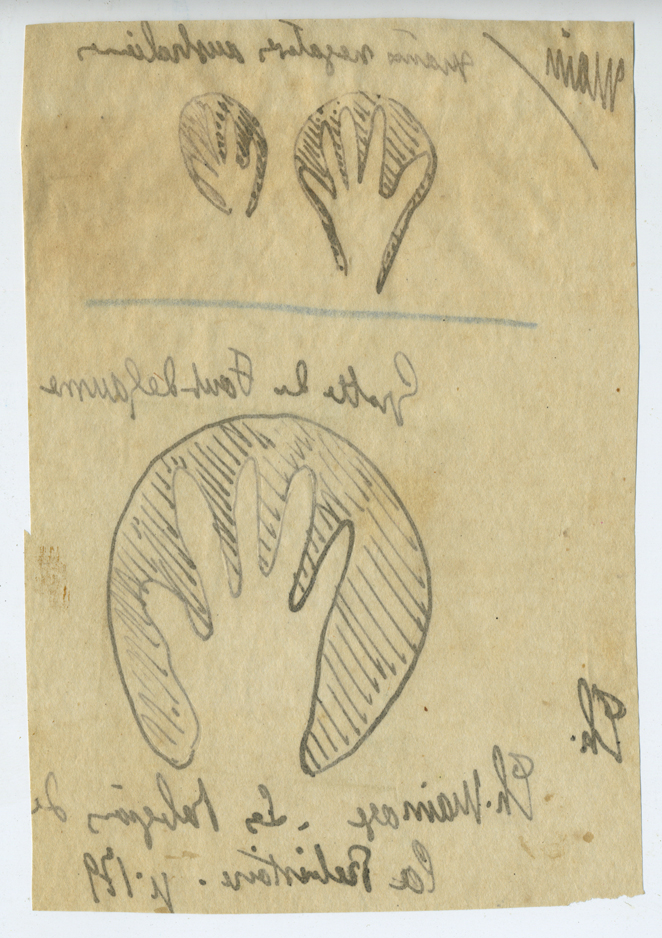 Main
mains negatives australiennes
Grotte de Font-de-Gaume
Th.
Th. Mainage - Les Religions de
la Prehistoire. p. 179